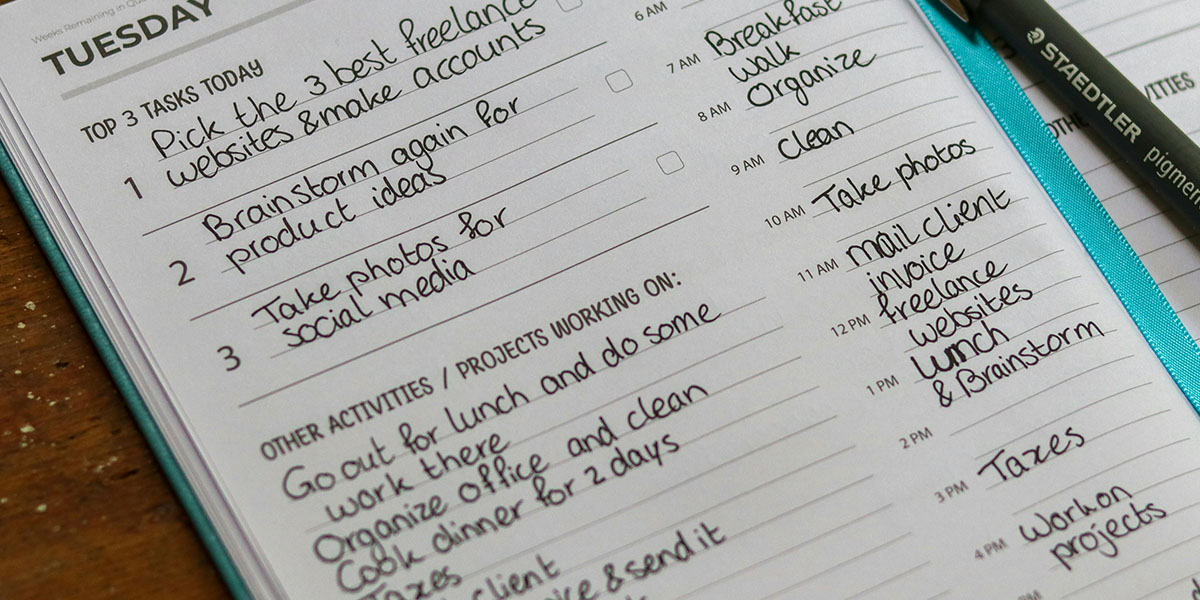 Weeks Remaining in
TUESDAY
TOP 3 TASKS TODAY
Pick the 3 best freelance
1 websites & make accounts
Brainstorm again for
2 product ideas
Take photos for
3 social media
OTHER ACTIVITIES / PROJECTS WORKING ON:
Go out for lunch and do some
work there
Organize office and clean
Cook dinner for 2 days
Taxes
client
& send it
6 AM
7 AM Breakfast
walk
8 AM Organize
9 AM Clean
10 AM Take photos
11 AM mail client
invoice
12 PM freelance
websites
1 PM lunch
& Brainstorm
2 PM
3 PM Taxes
4 PM Work on
projects
PM
STAEDTLER
pigment